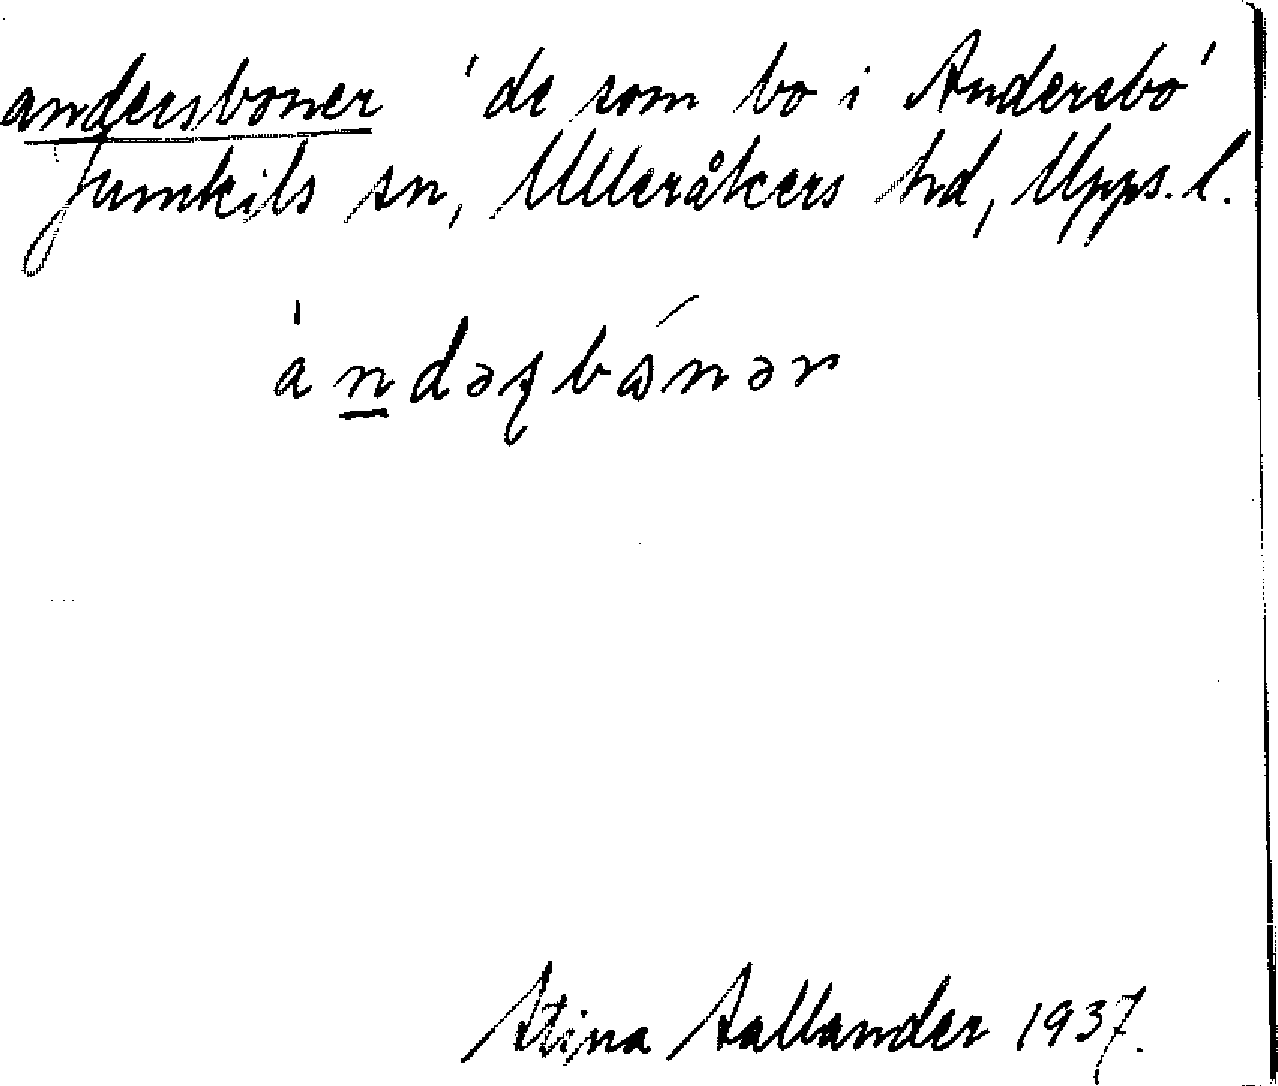 andersboner 'de som bo i Andersbo'
Jumkils sn, Ulleråkers hd, Upps. l.
Stina Sallander 1937.